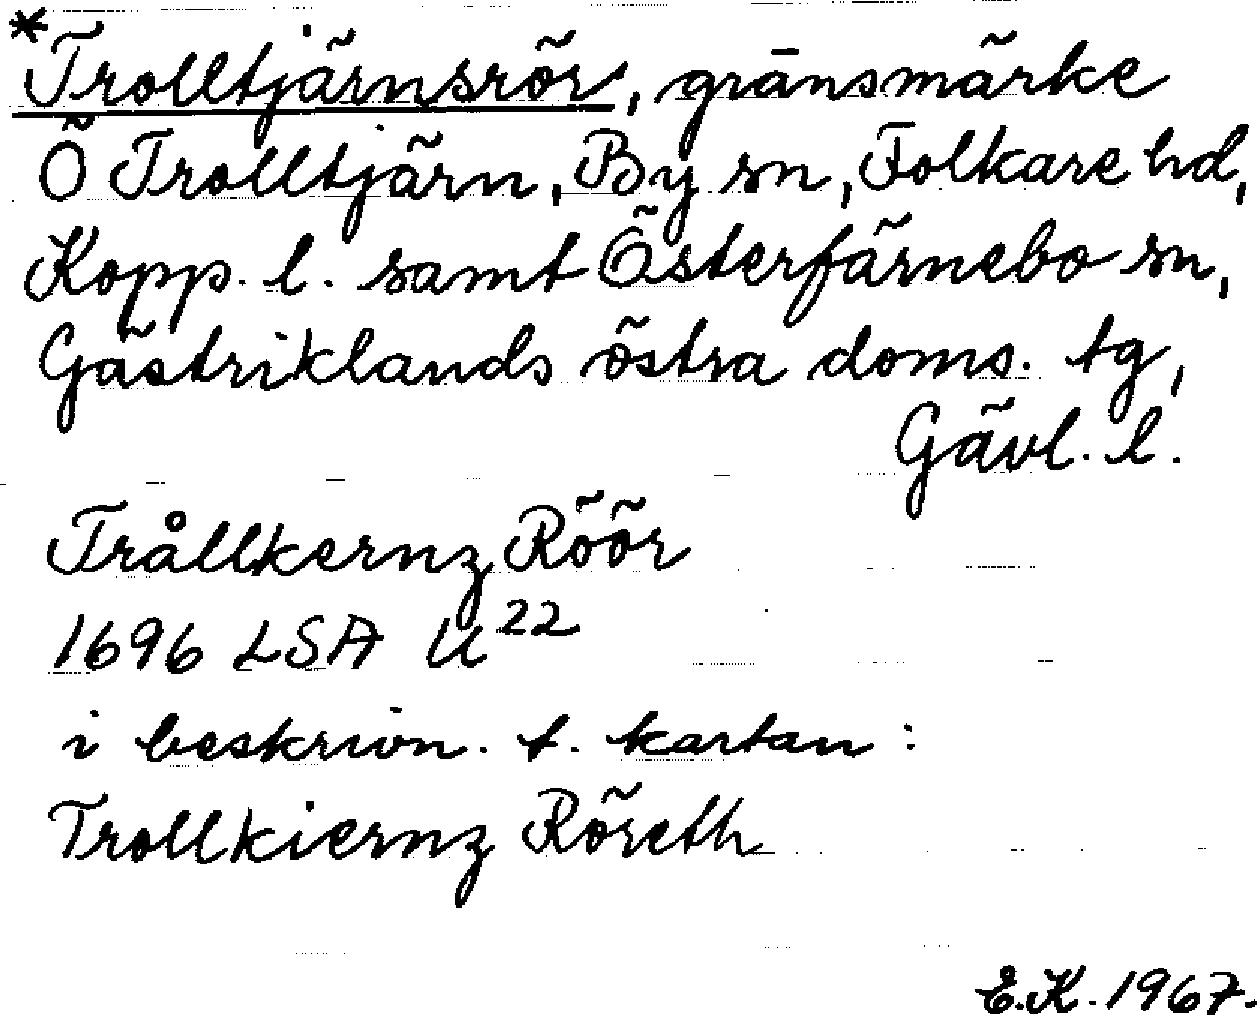 *Trolltjärnsrör, gränsmärke
Ö Trolltjärn, By sn, Folkare hd,
Kopp. l. samt Österfärnebo sn,
Gästriklands östra doms. tg,
Gävl. l.
Trållkernz Röör
1696 LSA U²²
i beskrivn. t. kartan:
Trollkiernz Röreth
E.K. 1967.